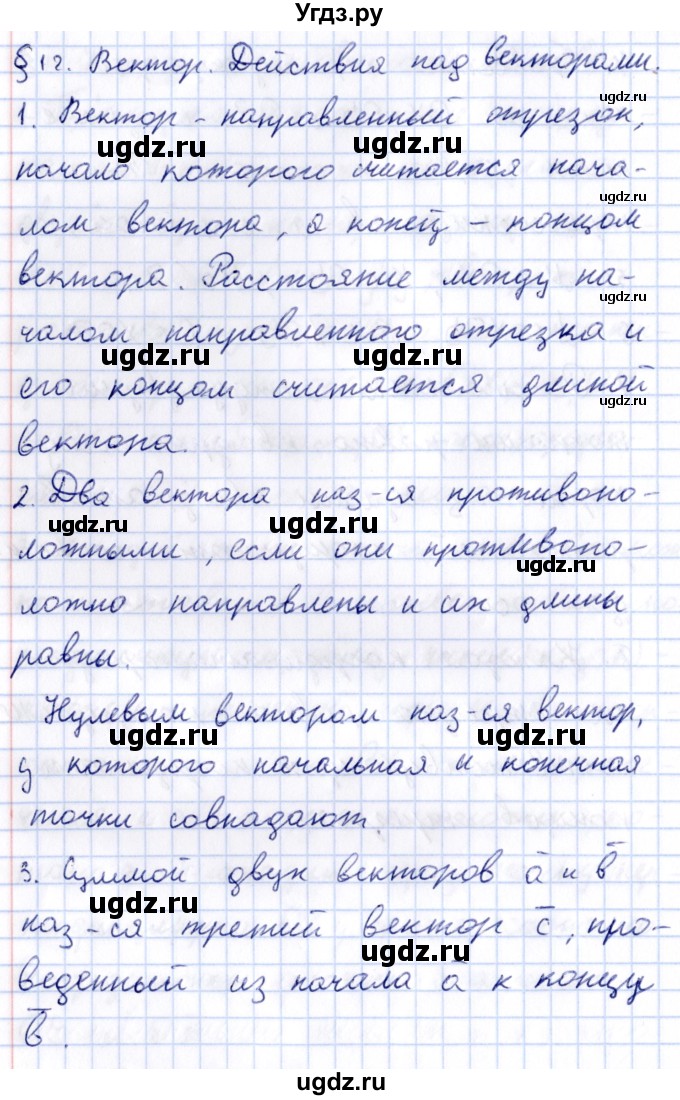 Угдз.ру
§ 12. Вектор. Действия над векторами.
ugdz.ru
1. Вектор - направленный отрезок,
ugdz.ru ugdz.ru
начало которого считается нача-
ugdz.ru
лом вектора, а конец - концом
вектора. Расстояние между на-
ugdz.ru
чалом направленного отрезка и
ugdz.ru ugdz.ru
его концом считается длиной
ugdz.ru
вектора.
2. Два вектора наз-ся противопо-
ugdz.ru ugdz.ru
ложными, если они противопо-
ugdz.ru
ложно направлены и их длины
равны.
Нулевым вектором наз-ся вектор,
ugdz.ru ugdz.ru
у которого начальная и конечная
точки совпадают.
3. Суммой двух векторов a̅ и b̅
ugdz.ru ugdz.ru
наз-ся третий вектор c̅, про-
веденный из начала a̅ к концу
b̅.
ugdz.ru